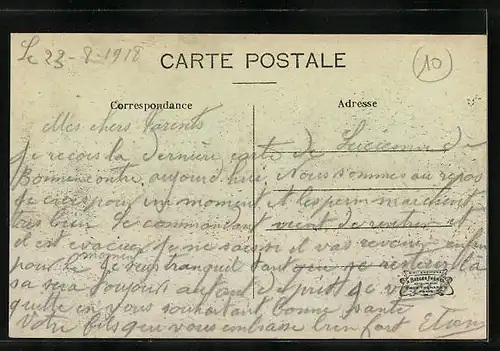 Le 23-8-1918
CARTE POSTALE
10
Correspondance
Adresse
Mes chers Parents
Je recois la dernière carte de de
Bonnencontre aujourd'hui. Nous sommes au repos
je crois pour un moment et les perm marchent
tres bien Le commandant vient de rentrer et
il est evacué je ne sais si il vas revenir enfin
pour le moment je suis tranquil tant que je resterai la
sa sera toujours autant de pris je vous
quitte en vous souhaitant bonne sante
Votre fils qui vous embrasse bien fort Etienne